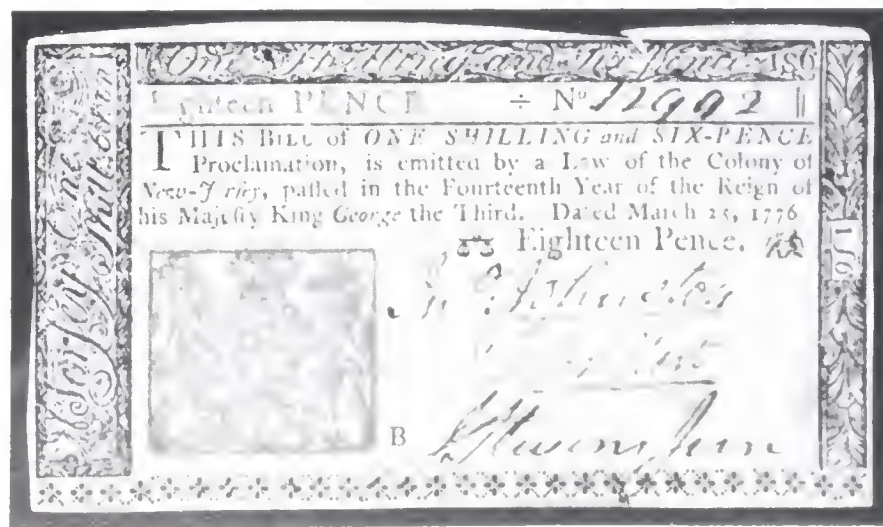 One Shilling and Six-pence 1s6
Eighteen PENCE ÷ No. 12992
THIS BILL of ONE SHILLING and SIX-PENCE
Proclamation, is emitted by a Law of the Colony of
New-Jersey, passed in the Fourteenth Year of the Reign of
his Majesty King George the Third. Dated March 25, 1776
Eighteen Pence.
B
Jersey One
1s6